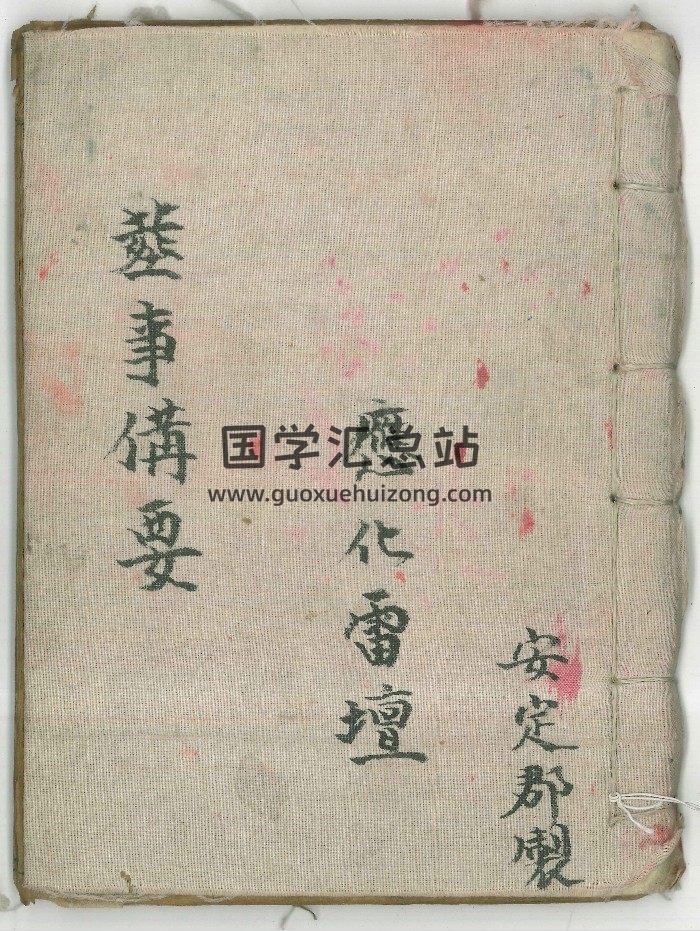 安定郡製
應化雷壇
事備要
国学汇总站
www.guoxuehuizong.com